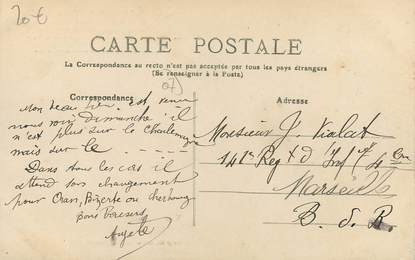 20 €
CARTE POSTALE
La Correspondance au recto n'est pas acceptée par tous les pays étrangers
(Se renseigner à la Poste)
Correspondance
Adresse
Mon beau frère est venu
nous voir dimanche il
n'est plus sur le Charlemagne
mais sur le - - - - -
Dans tous les cas il
attend son changement
pour Oran, Bizerte ou Cherbourg
Bons Baisers
Monsieur J. Violat
141e Reg t d' Inf
Marseille
B. d. R.